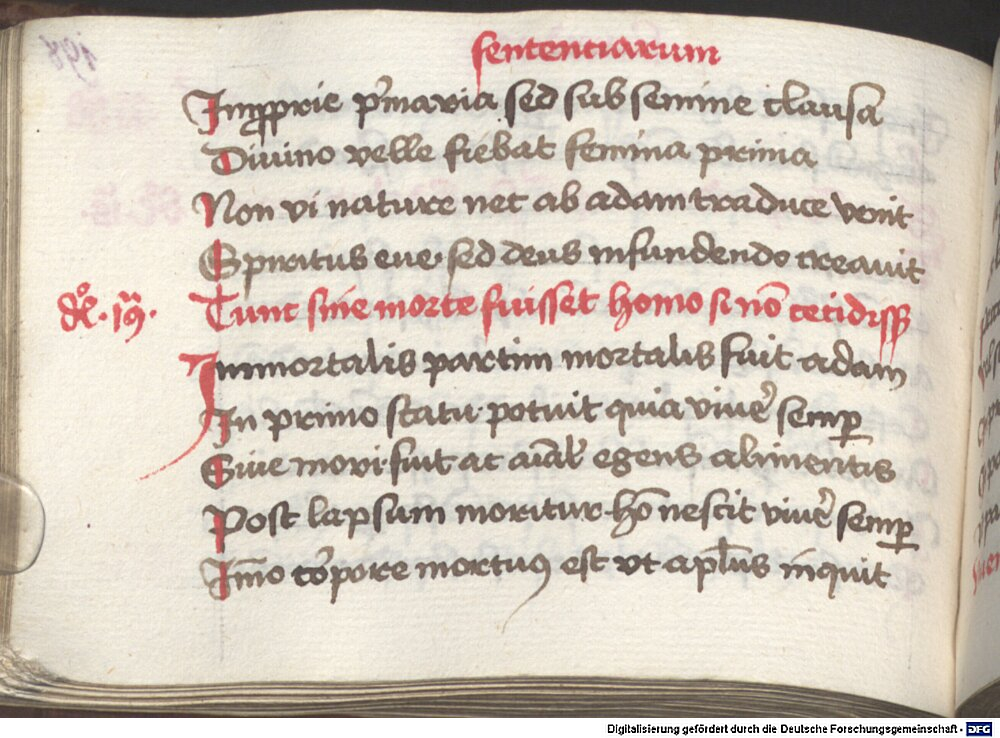 sententiarum
Imꝓprie p̾maria sed sub semine clausa
Diuino velle fiebat femina prima
Non vi nature nec ab adam traduce venit
Spiritus eue· sed deus infundendo creauit
dẜ· 19· Tunc sine morte fuisset homo si nō cecidisꝫ
Immortalis partim mortalis fuit adam
In primo statu· potuit quia viue᷑ semꝑ
Siue mori· fuit ac aīal' egens alimentis
Post lapsum moritur· hō nescit viue᷑ semꝑ
Īmo corpore mortuꝰ est vt apl̄us inquit
Digitalisierung gefördert durch die Deutsche Forschungsgemeinschaft - DFG